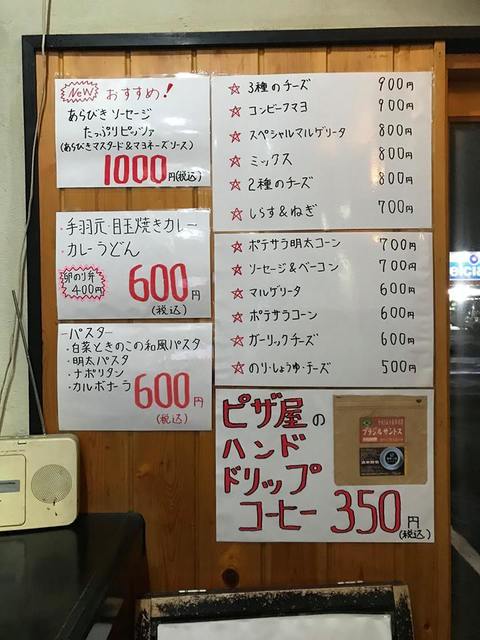 NEW おすすめ!
あらびきソーセージ
たっぷりピッツァ
(あらびきマスタード&マヨネーズソース)
1000円(税込)
・手羽元・目玉焼きカレー
・カレーうどん
卵のり弁
400円
600円
(税込)
ーパスター
・白菜ときのこの和風パスタ
・明太パスタ
・ナポリタン
・カルボナーラ
600円
(税込)
☆ 3種のチーズ 900円
☆ コンビーフマヨ 900円
☆ スペシャルマルゲリータ 800円
☆ ミックス 800円
☆ 2種のチーズ 800円
☆ しらす&ねぎ 700円
☆ ポテサラ明太コーン 700円
☆ ソーセージ&ベーコン 700円
☆ マルゲリータ 600円
☆ ポテサラコーン 600円
☆ ガーリックチーズ 600円
☆ のり・しょうゆ・チーズ 500円
ピザ屋の
ハンド
ドリップ
コーヒー 350円
(税込)
ブラジルサントス